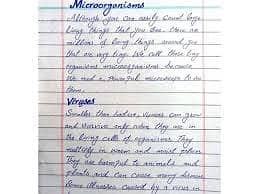 Microorganisms
Although you can easily count large
living things that you see, there are
millions of living things around you
that are very tiny. We call these tiny
organisms microorganisms because
we need a powerful microscope to see
them.
Viruses
Smaller than bacteria, viruses can grow
and survive only when they are in
the living cells of organisms. They
multiply in warm and moist places
They are harmful to animals and
plants and can cause many diseases
Some illnesses caused by a virus are